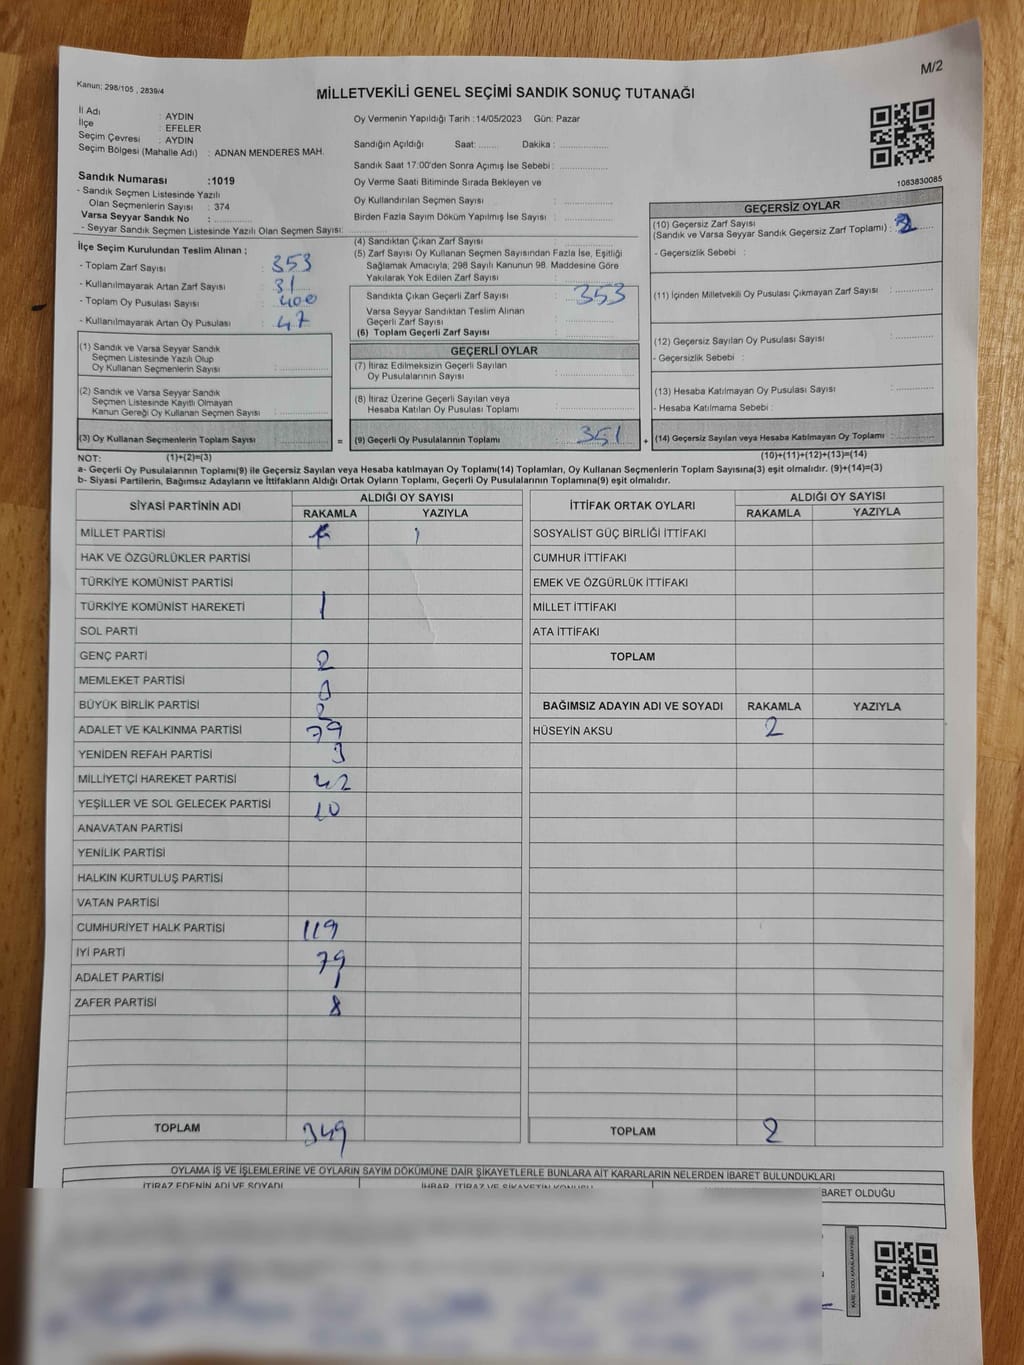 M/2
Kanun; 298/105 , 2839/4
MİLLETVEKİLİ GENEL SEÇİMİ SANDIK SONUÇ TUTANAĞI
İl Adı : AYDIN
İlçe : EFELER
Seçim Çevresi : AYDIN
Seçim Bölgesi (Mahalle Adı) : ADNAN MENDERES MAH.
Sandık Numarası :1019
- Sandık Seçmen Listesinde Yazılı
Olan Seçmenlerin Sayısı : 374
Varsa Seyyar Sandık No :
- Seyyar Sandık Seçmen Listesinde Yazılı Olan Seçmen Sayısı:
Oy Vermenin Yapıldığı Tarih :14/05/2023 Gün: Pazar
Sandığın Açıldığı Saat: Dakika :
Sandık Saat 17:00'den Sonra Açımış İse Sebebi :
Oy Verme Saati Bitiminde Sırada Bekleyen ve
Oy Kullandırılan Seçmen Sayısı :
Birden Fazla Sayım Döküm Yapılmış İse Sayısı :
1083830085
İlçe Seçim Kurulundan Teslim Alınan ;
- Toplam Zarf Sayısı : 353
- Kullanılmayarak Artan Zarf Sayısı : 31
- Toplam Oy Pusulası Sayısı : 400
- Kullanılmayarak Artan Oy Pusulası : 47
(1) Sandık ve Varsa Seyyar Sandık
Seçmen Listesinde Yazılı Olup
Oy Kullanan Seçmenlerin Sayısı :
(2) Sandık ve Varsa Seyyar Sandık
Seçmen Listesinde Kayıtlı Olmayan
Kanun Gereği Oy Kullanan Seçmen Sayısı :
(3) Oy Kullanan Seçmenlerin Toplam Sayısı :
(4) Sandıktan Çıkan Zarf Sayısı :
(5) Zarf Sayısı Oy Kullanan Seçmen Sayısından Fazla İse, Eşitliği
Sağlamak Amacıyla; 298 Sayılı Kanunun 98. Maddesine Göre
Yakılarak Yok Edilen Zarf Sayısı :
Sandıkta Çıkan Geçerli Zarf Sayısı : 353
Varsa Seyyar Sandıktan Teslim Alınan
Geçerli Zarf Sayısı :
(6) Toplam Geçerli Zarf Sayısı :
GEÇERLİ OYLAR
(7) İtiraz Edilmeksizin Geçerli Sayılan
Oy Pusulalarının Sayısı :
(8) İtiraz Üzerine Geçerli Sayılan veya
Hesaba Katılan Oy Pusulası Toplamı :
= (9) Geçerli Oy Pusulalarının Toplamı : 351
GEÇERSİZ OYLAR
(10) Geçersiz Zarf Sayısı
(Sandık ve Varsa Seyyar Sandık Geçersiz Zarf Toplamı) :
- Geçersizlik Sebebi :
(11) İçinden Milletvekili Oy Pusulası Çıkmayan Zarf Sayısı :
(12) Geçersiz Sayılan Oy Pusulası Sayısı :
- Geçersizlik Sebebi :
(13) Hesaba Katılmayan Oy Pusulası Sayısı :
- Hesaba Katılmama Sebebi :
+ (14) Geçersiz Sayılan veya Hesaba Katılmayan Oy Toplamı :
NOT: (1)+(2)=(3)
(10)+(11)+(12)+(13)=(14)
a- Geçerli Oy Pusulalarının Toplamı(9) ile Geçersiz Sayılan veya Hesaba katılmayan Oy Toplamı(14) Toplamları, Oy Kullanan Seçmenlerin Toplam Sayısına(3) eşit olmalıdır. (9)+(14)=(3)
b- Siyasi Partilerin, Bağımsız Adayların ve İttifakların Aldığı Ortak Oyların Toplamı, Geçerli Oy Pusulalarının Toplamına(9) eşit olmalıdır.
SİYASİ PARTİNİN ADI ALDIĞI OY SAYISI
RAKAMLA YAZIYLA
MİLLET PARTİSİ 1
HAK VE ÖZGÜRLÜKLER PARTİSİ
TÜRKİYE KOMÜNİST PARTİSİ
TÜRKİYE KOMÜNİST HAREKETİ 1
SOL PARTİ
GENÇ PARTİ 2
MEMLEKET PARTİSİ
BÜYÜK BİRLİK PARTİSİ 2
ADALET VE KALKINMA PARTİSİ 79
YENİDEN REFAH PARTİSİ 3
MİLLİYETÇİ HAREKET PARTİSİ 42
YEŞİLLER VE SOL GELECEK PARTİSİ 10
ANAVATAN PARTİSİ
YENİLİK PARTİSİ
HALKIN KURTULUŞ PARTİSİ
VATAN PARTİSİ
CUMHURİYET HALK PARTİSİ 119
İYİ PARTİ 79
ADALET PARTİSİ 1
ZAFER PARTİSİ 8
TOPLAM 349
İTTİFAK ORTAK OYLARI ALDIĞI OY SAYISI
RAKAMLA YAZIYLA
SOSYALİST GÜÇ BİRLİĞİ İTTİFAKI
CUMHUR İTTİFAKI
EMEK VE ÖZGÜRLÜK İTTİFAKI
MİLLET İTTİFAKI
ATA İTTİFAKI
TOPLAM
BAĞIMSIZ ADAYIN ADI VE SOYADI RAKAMLA YAZIYLA
HÜSEYİN AKSU 2
TOPLAM 2
OYLAMA İŞ VE İŞLEMLERİNE VE OYLARIN SAYIM DÖKÜMÜNE DAİR ŞİKAYETLERLE BUNLARA AİT KARARLARIN NELERDEN İBARET BULUNDUKLARI
İTİRAZ EDENİN ADI VE SOYADI İHBAR, İTİRAZ VE ŞİKAYETİN KONUSU BARET OLDUĞU